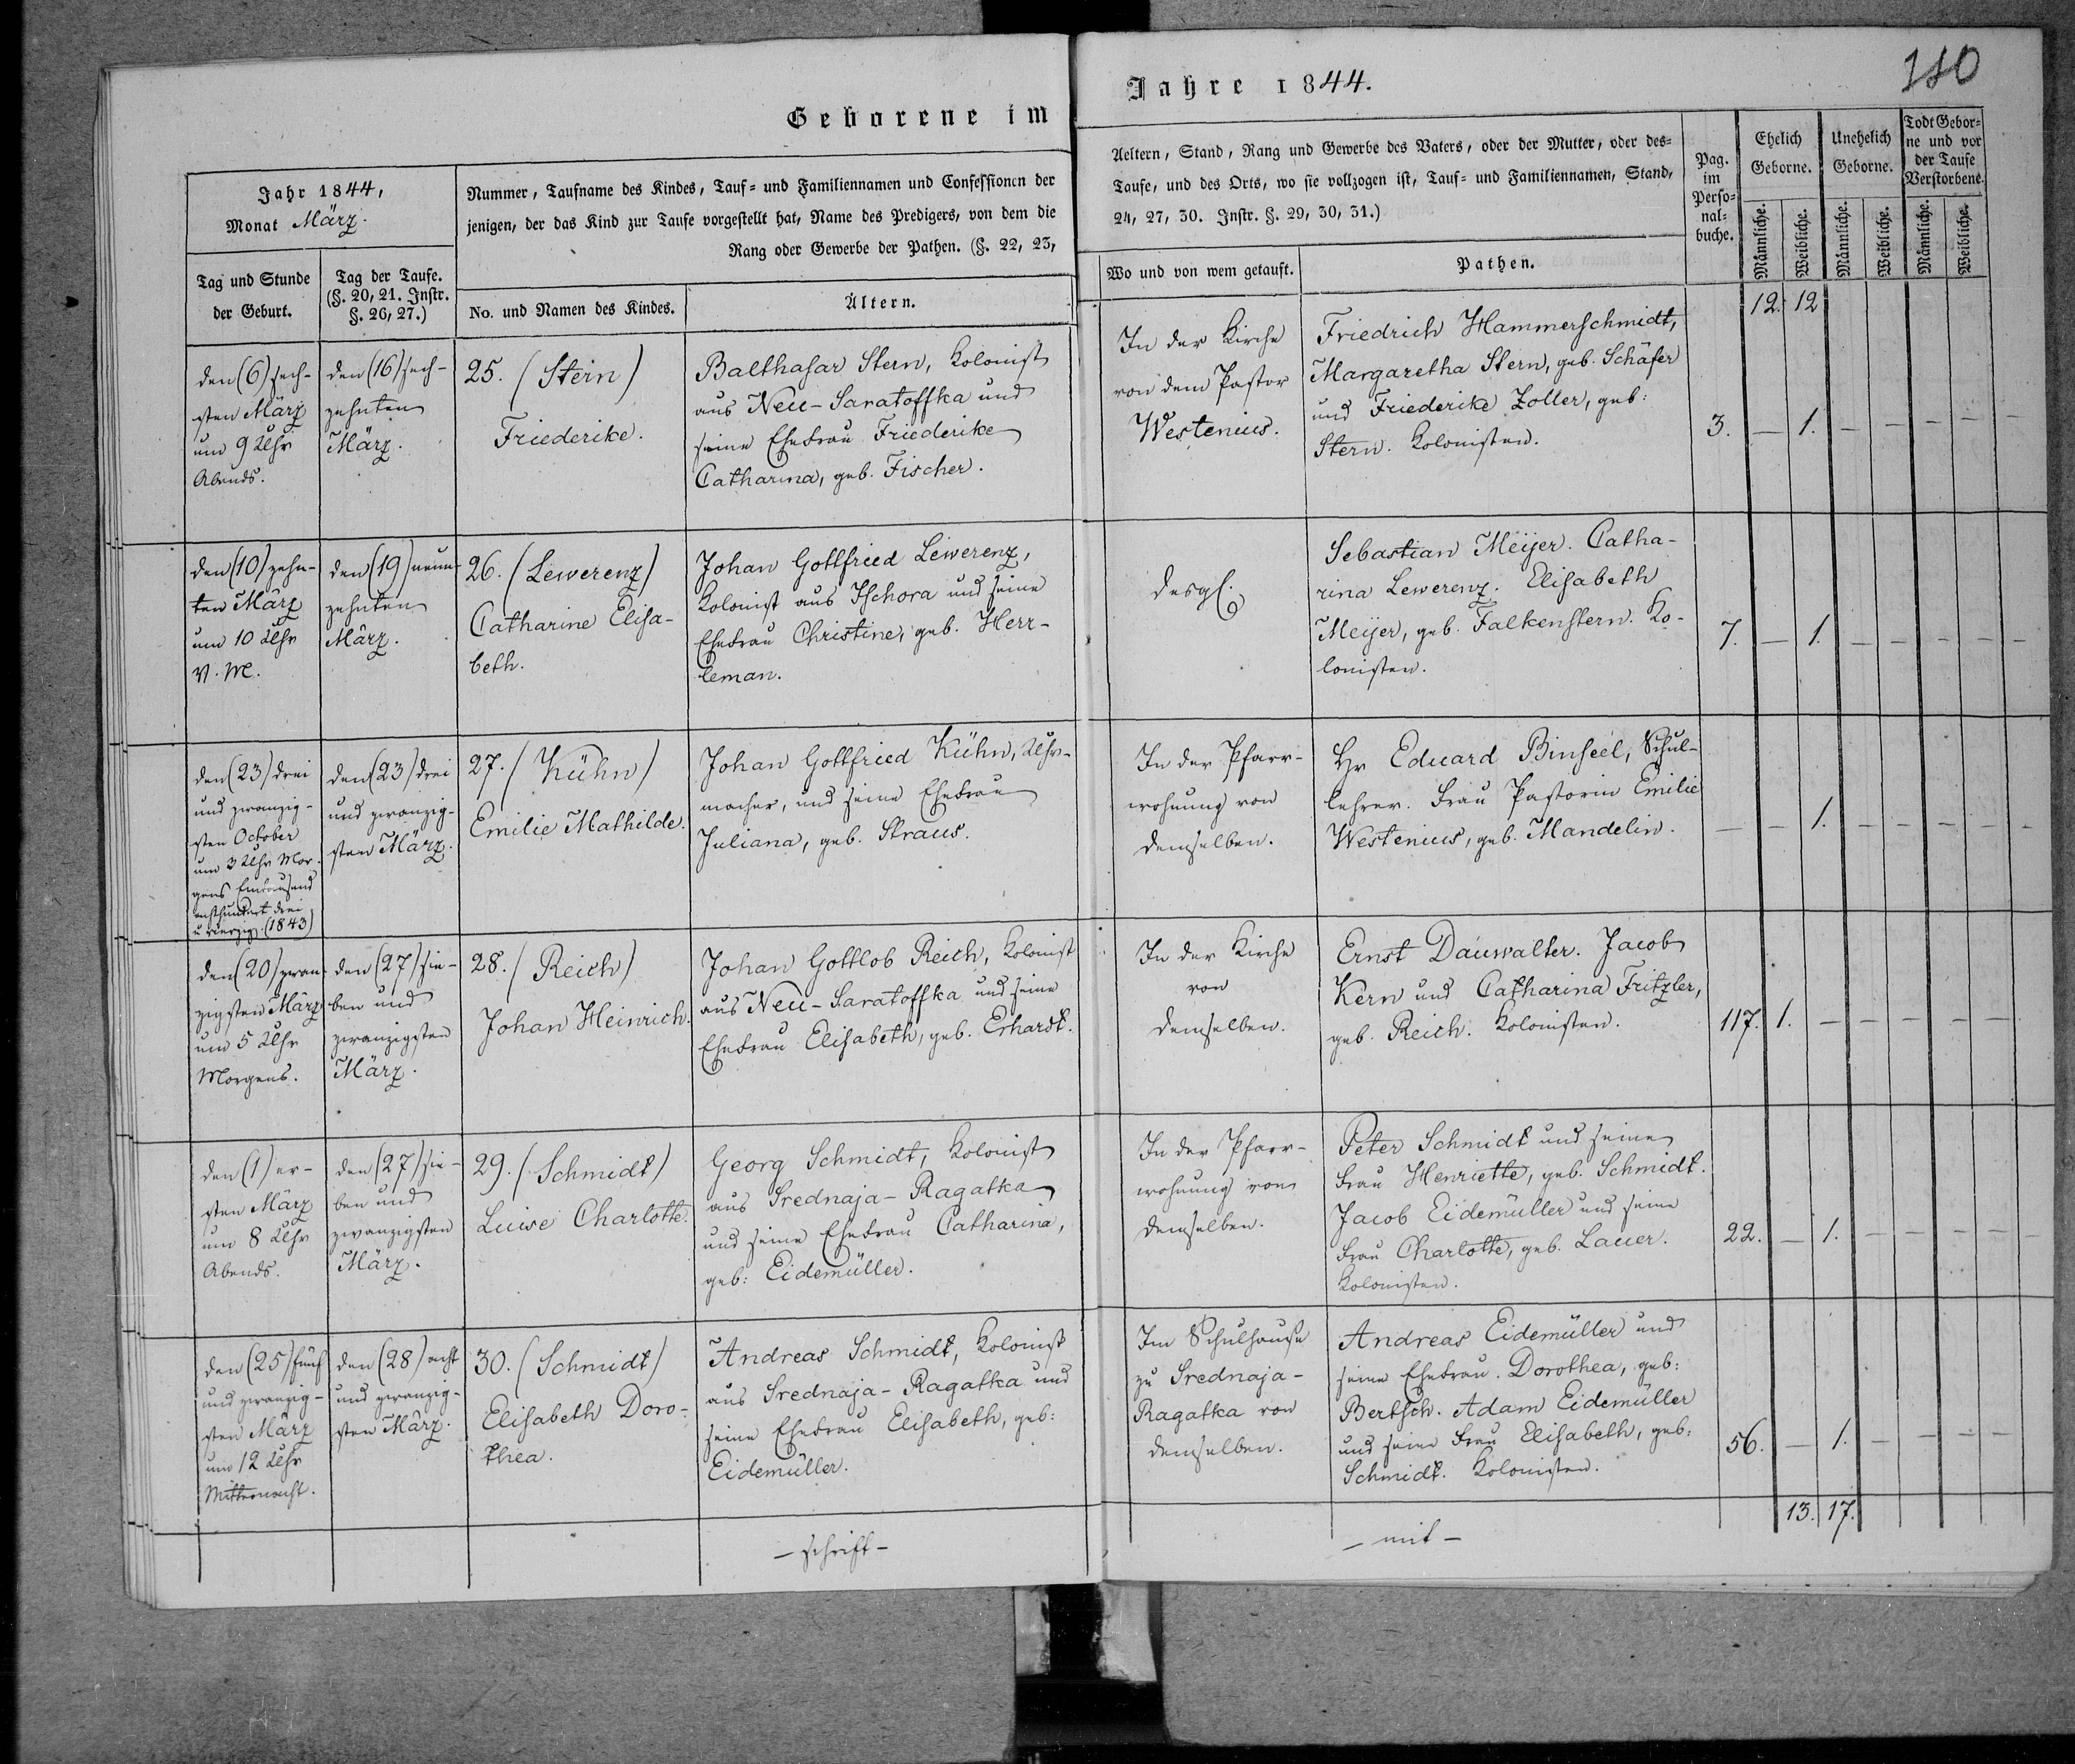 110
Geborene im
Jahre 1844.
Jahr 1844,
Monat März.
Nummer, Taufname des Kindes, Tauf- und Familiennamen und Confessionen der
jenigen, der das Kind zur Taufe vorgestellt hat, Name des Predigers, von dem die
Rang oder Gewerbe der Pathen. (§. 22, 23,
Tag und Stunde
der Geburt.
Tag der Taufe.
(§. 20, 21. Instr.
§. 26, 27.)
No. und Namen des Kindes.
Ältern.
Aeltern, Stand, Rang und Gewerbe des Vaters, oder der Mutter, oder des-
Taufe, und des Orts, wo sie vollzogen ist, Tauf- und Familiennamen, Stand,
24, 27, 30. Instr. §. 29, 30, 31.)
Wo und von wem getauft.
Pathen.
Pag.
im
Perso-
nal-
buche.
Ehelich
Geborne.
Unehelich
Geborne.
Todt Gebor-
ne und vor
der Taufe
Verstorbene.
Männliche.
Weibliche.
Männliche.
Weibliche.
Männliche.
Weibliche.
12. 12
den (6) sech-
sten März
um 9 Uhr
Abends.
den (16) sech-
zehnten
März.
25. (Stern)
Friederike.
Balthasar Stern, Kolonist
aus Neu-Saratoffka und
seine Ehefrau Friederike
Catharina, geb. Fischer.
In der Kirche
von dem Pastor
Westenius.
Friedrich Hammerschmidt,
Margaretha Stern, geb. Schäfer
und Friederike Zoller, geb:
Stern. Kolonisten.
3. — 1. — — — —
den (10) zehn-
ten März
um 10 Uhr
V. M.
den (19) neun-
zehnten
März.
26. (Lewerenz)
Catharine Elisa-
beth.
Johan Gottfried Lewerenz,
Kolonist aus Ischora und seine
Ehefrau Christine, geb. Herr-
leman.
desgl.
Sebastian Meijer. Catha-
rina Lewerenz. Elisabeth
Meijer, geb. Falkenstern. Ko-
lonisten.
7. — 1. — — — —
den (23) drei
und zwanzig-
sten October
um 3 Uhr Mor-
gens Eintausend
achthundert drei
u vierzig. (1843)
den (23) drei
und zwanzig-
sten März.
27. (Kühn)
Emilie Mathilde.
Johan Gottfried Kühn, Uhr-
macher, und seine Ehefrau
Juliana, geb. Straus.
In der Pfarr-
wohnung von
demselben.
Hr Eduard Binseel, Schul-
lehrer. Frau Pastorin Emilie
Westenius, geb. Mandelin.
— — 1. — — — —
den (20) zwan-
zigsten März
um 5 Uhr
Morgens.
den (27) sie-
ben und
zwanzigsten
März.
28. (Reich)
Johan Heinrich.
Johan Gottlob Reich, Kolonist
aus Neu-Saratoffka und seine
Ehefrau Elisabeth, geb. Erhardt.
In der Kirche
von
demselben.
Ernst Dauwalter. Jacob
Kern und Catharina Fritzler,
geb. Reich. Kolonisten.
117. 1. — — — — —
den (1) er-
sten März
um 8 Uhr
Abends.
den (27) sie-
ben und
zwanzigsten
März.
29. (Schmidt)
Luise Charlotte.
Georg Schmidt, Kolonist
aus Srednaja-Ragatka
und seine Ehefrau Catharina,
geb: Eidemüller.
In der Pfarr-
wohnung von
demselben.
Peter Schmidt und seine
Frau Henriette, geb. Schmidt.
Jacob Eidemüller und seine
Frau Charlotte, geb. Lauer.
Kolonisten.
22. — 1. — — — —
den (25) fünf
und zwanzig-
sten März
um 12 Uhr
Mitternacht.
den (28) acht
und zwanzig-
sten März.
30. (Schmidt)
Elisabeth Doro-
thea.
Andreas Schmidt, Kolonist
aus Srednaja-Ragatka und
seine Ehefrau Elisabeth, geb:
Eidemüller.
Im Schulhause
zu Srednaja-
Ragatka von
demselben.
Andreas Eidemüller und
seine Ehefrau. Dorothea, geb:
Bertsch. Adam Eidemüller
und seine Frau Elisabeth, geb:
Schmidt. Kolonisten.
56. — 1. — — — —
13. 17.
— schrift —
— mit —